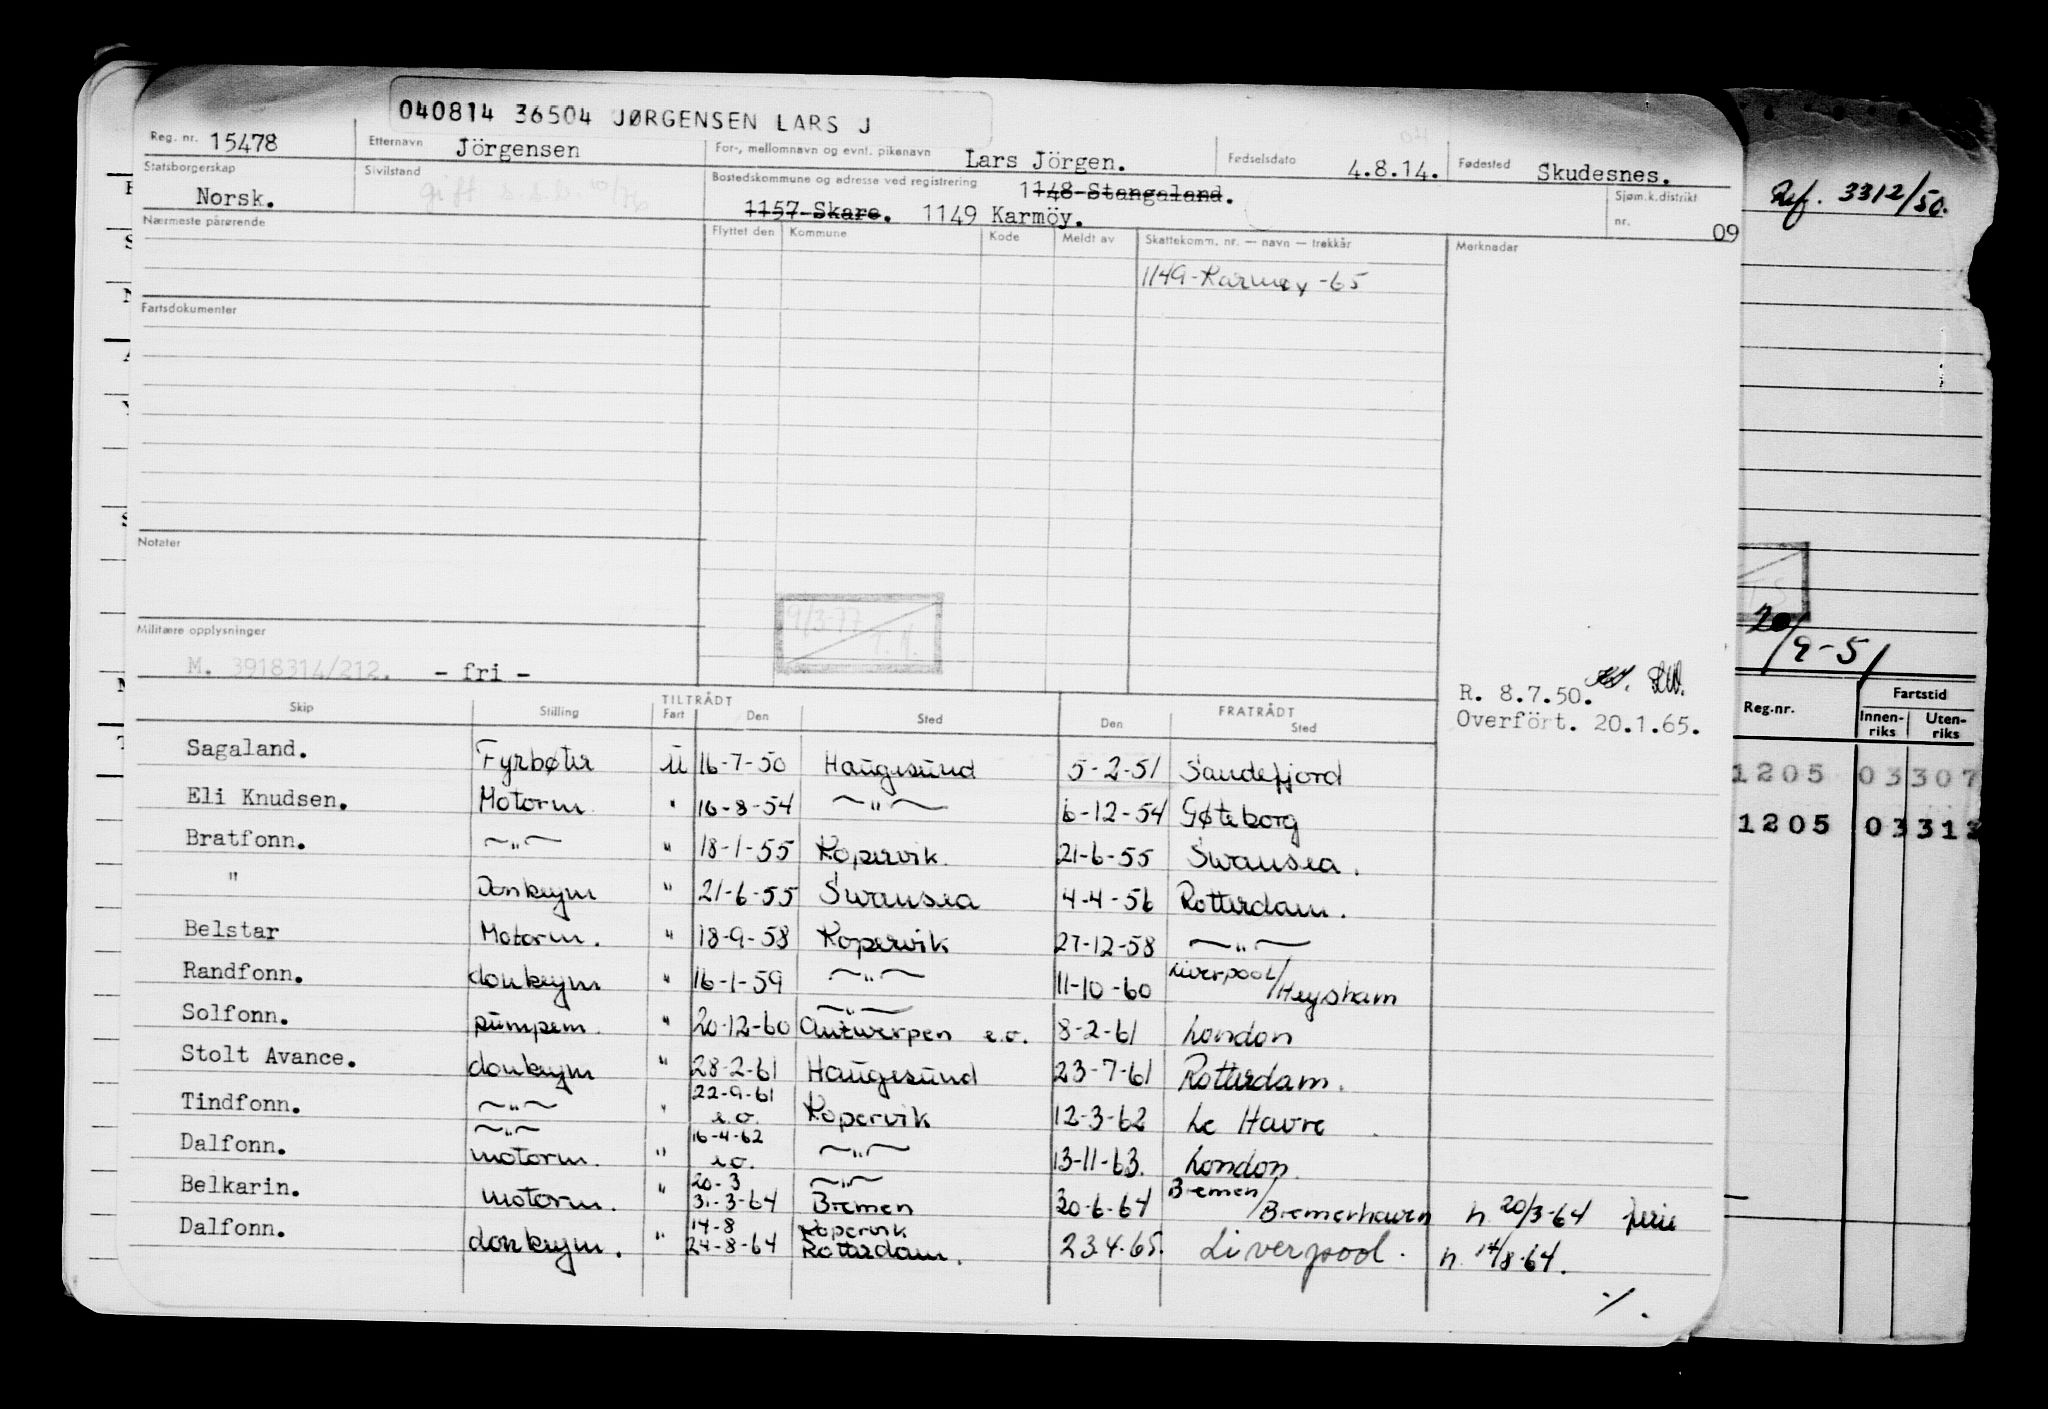 040814 36504 JØRGENSEN LARS J
Reg. nr. 15478 Etternavn Jörgensen For-, mellomnavn og evnt. pikenavn Lars Jörgen. Fødselsdato 4.8.14. Fødested Skudesnes.
Statsborgerskap Norsk. Sivilstand gift Bostedskommune og adresse ved registrering 1148 Stangaland. Sjøm.k.distrikt
1157 Skare. 1149 Karmöy. nr. 09
Nærmeste pårørende Flyttet den Kommune Kode Meldt av Skattekomm. nr. — navn — trekkår Merknader
1149-Karmøy-65
Fartsdokumenter
Notater
9/3-77
Militære opplysninger
M. 3918314/212. - fri -
R. 8.7.50.
Overfört. 20.1.65.
TILTRÅDT FRATRÅDT
Skip Stilling Fart Den Sted Den Sted
Sagaland. Fyrbøter U 16-7-50 Haugesund 5-2-51 Sandefjord
Eli Knudsen. Motorm " 16-8-54 —"— 6-12-54 Gøteborg
Bratfonn. —"— " 18-1-55 Kopervik. 21-6-55 Swansea.
" Donkeym " 21-6-55 Swansea 4-4-56 Rotterdam.
Belstar Motorm. " 18-9-58 Kopervik 27-12-58 —"—
Randfonn. donkeym " 16-1-59 —"— 11-10-60 Liverpool/Heysham
—"—
Solfonn. pumpem. " 20-12-60 Antwerpen e.o. 8-2-61 London
Stolt Avance. donkeym " 28-2-61 Haugesund 23-7-61 Rotterdam.
22-9-61
Tindfonn. —"— " e.o. Kopervik 12-3-62 Le Havre
—"— 16-4-62
Dalfonn. motorm. " e.o. —"— 13-11-63. London.
20-3 —"—
Belkarin. motorm. " 31-3-64 Bremen 30-6-64 Bremen/Bremerhaven n 20/3-64 ferie
14-8 Kopervik
Dalfonn. donkeym. " 24-8-64 Rotterdam. 23.4.65. Liverpool. n. 14/8-64.
./.
Ref. 3312/50.
20/9-51
Reg.nr. Fartstid
Innen-riks Uten-riks
1205 03 307
1205 03 312